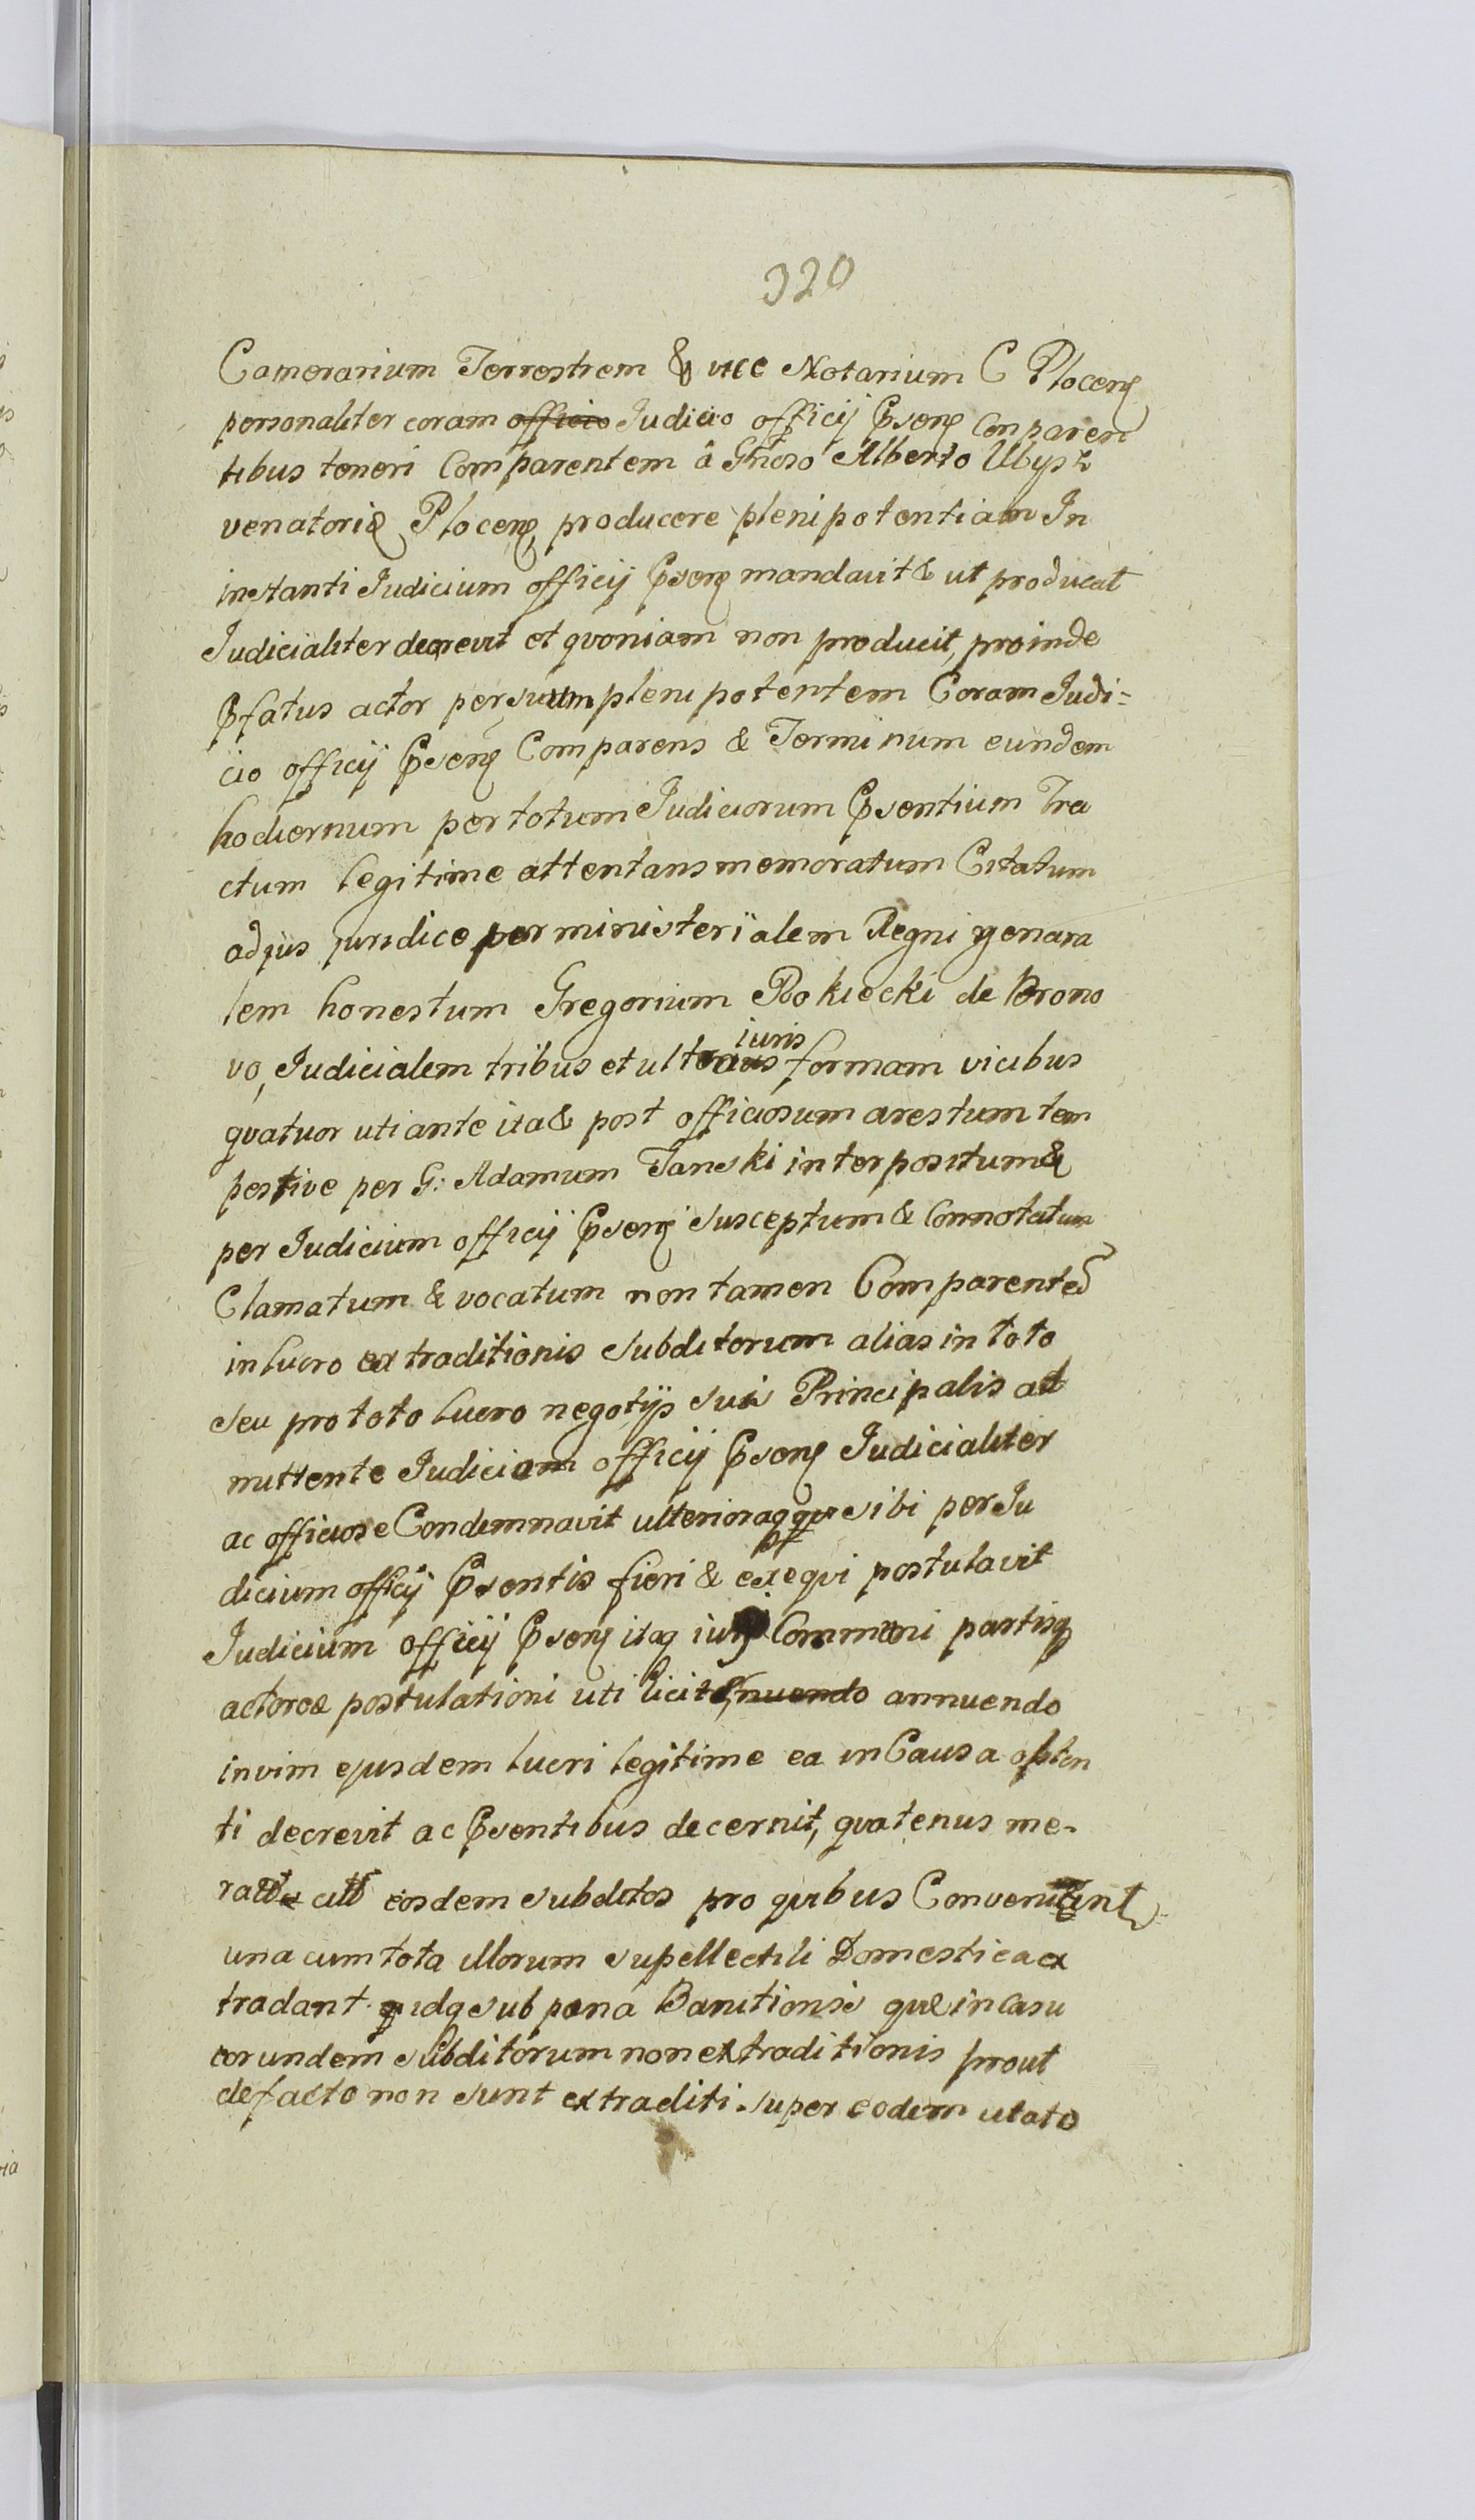 320
Camerarium Terrestrem & vice Notarium C Plocens
personaliter coram officio Judicio officij Psens Conparen
tibus teneri Comparentem â Gnoso Alberto Ubysz
venatoris Plocens, producere plenipotentiam In
instanti Judicium officij Psens mandavit & ut producat
Judicialiter decrevit et qvoniam non producit, proinde
Pfatus actor per suum plenipotentem Coram Judi=
cio officij Psens Comparens & Terminum eundem
hodiernum per totum Judiciorum Psentium Tra
ctum legitime attentans memoratum Citatum
ad jus juridice per ministerialem Regni genera
lem honestum Gregorium Rokiecki de Brono
vo, Judicialem tribus et ultra iuris formam vicibus
qvatuor uti ante ita & post officiosum arestum tem
pestive per G: Adamum Tanski interpositum &
per Judicium officij Psens susceptum & Connotatum
Clamatum & vocatum non tamen Comparente
in lucro extraditionis subditorum alias in toto
seu pro toto lucro negotijs sui Principalis ad
mittente Judiciam officij Psens Judicialiter
ac officiose Condemnavit ulterioraqq sibi per Ju
dicium officij Psentis fieri & exeqvi postulavit
Judicium officij Psens itaq iuri Communi partisq
actoreæ postulationi uti licite annuendo annuendo
in vim ejusdem lucri legitime ea in Causa obten
ti decrevit ac Psentibus decernit, qvatenus me-
eosdem subditos pro qvibus Conveniunt
una cum tota illorum supellectili Domestica ex
tradant idq sub pæna Banitionis quæ in casu
eorundem subditorum non extraditionis prout
de facto non sunt extraditi super eodem citato